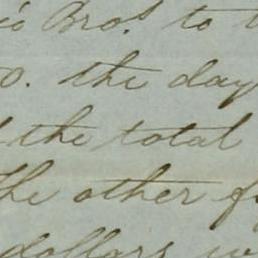 Bros. to
0. the day
the total
the other
dollars